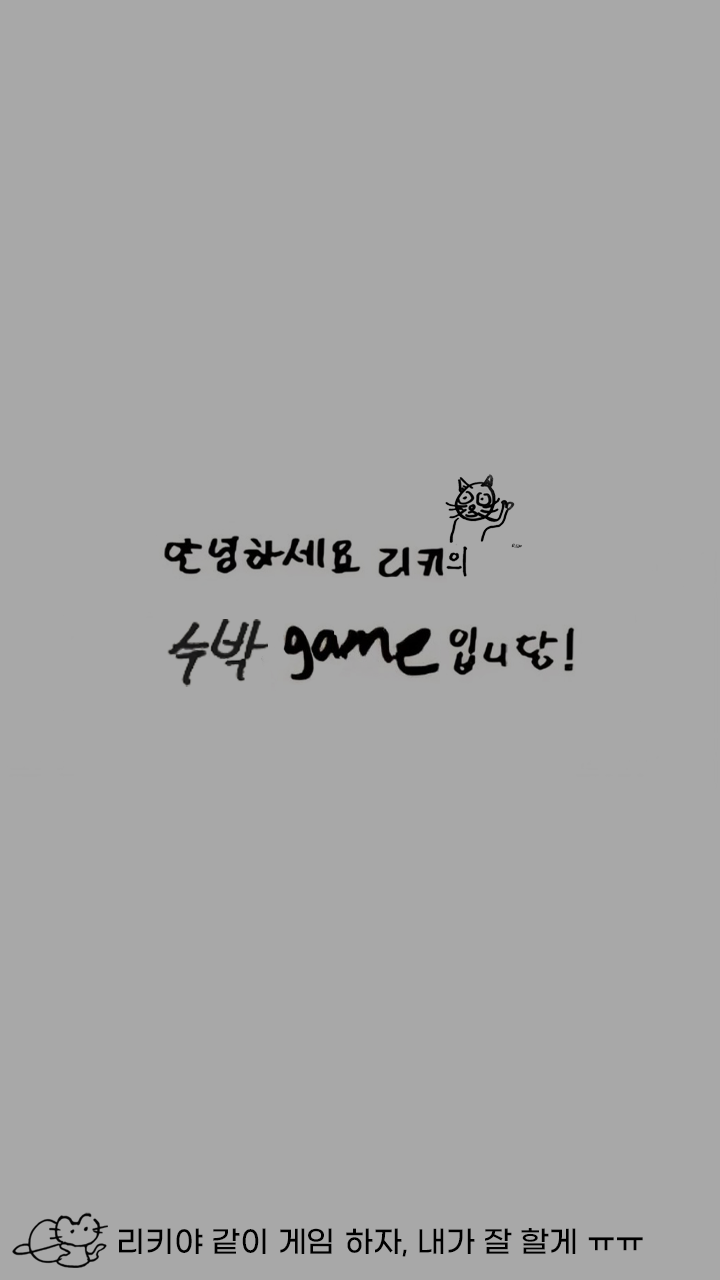 안녕하세요 리키의
수박 game 입니답!
리키야 같이 게임 하자, 내가 잘 할게 ㅠㅠ